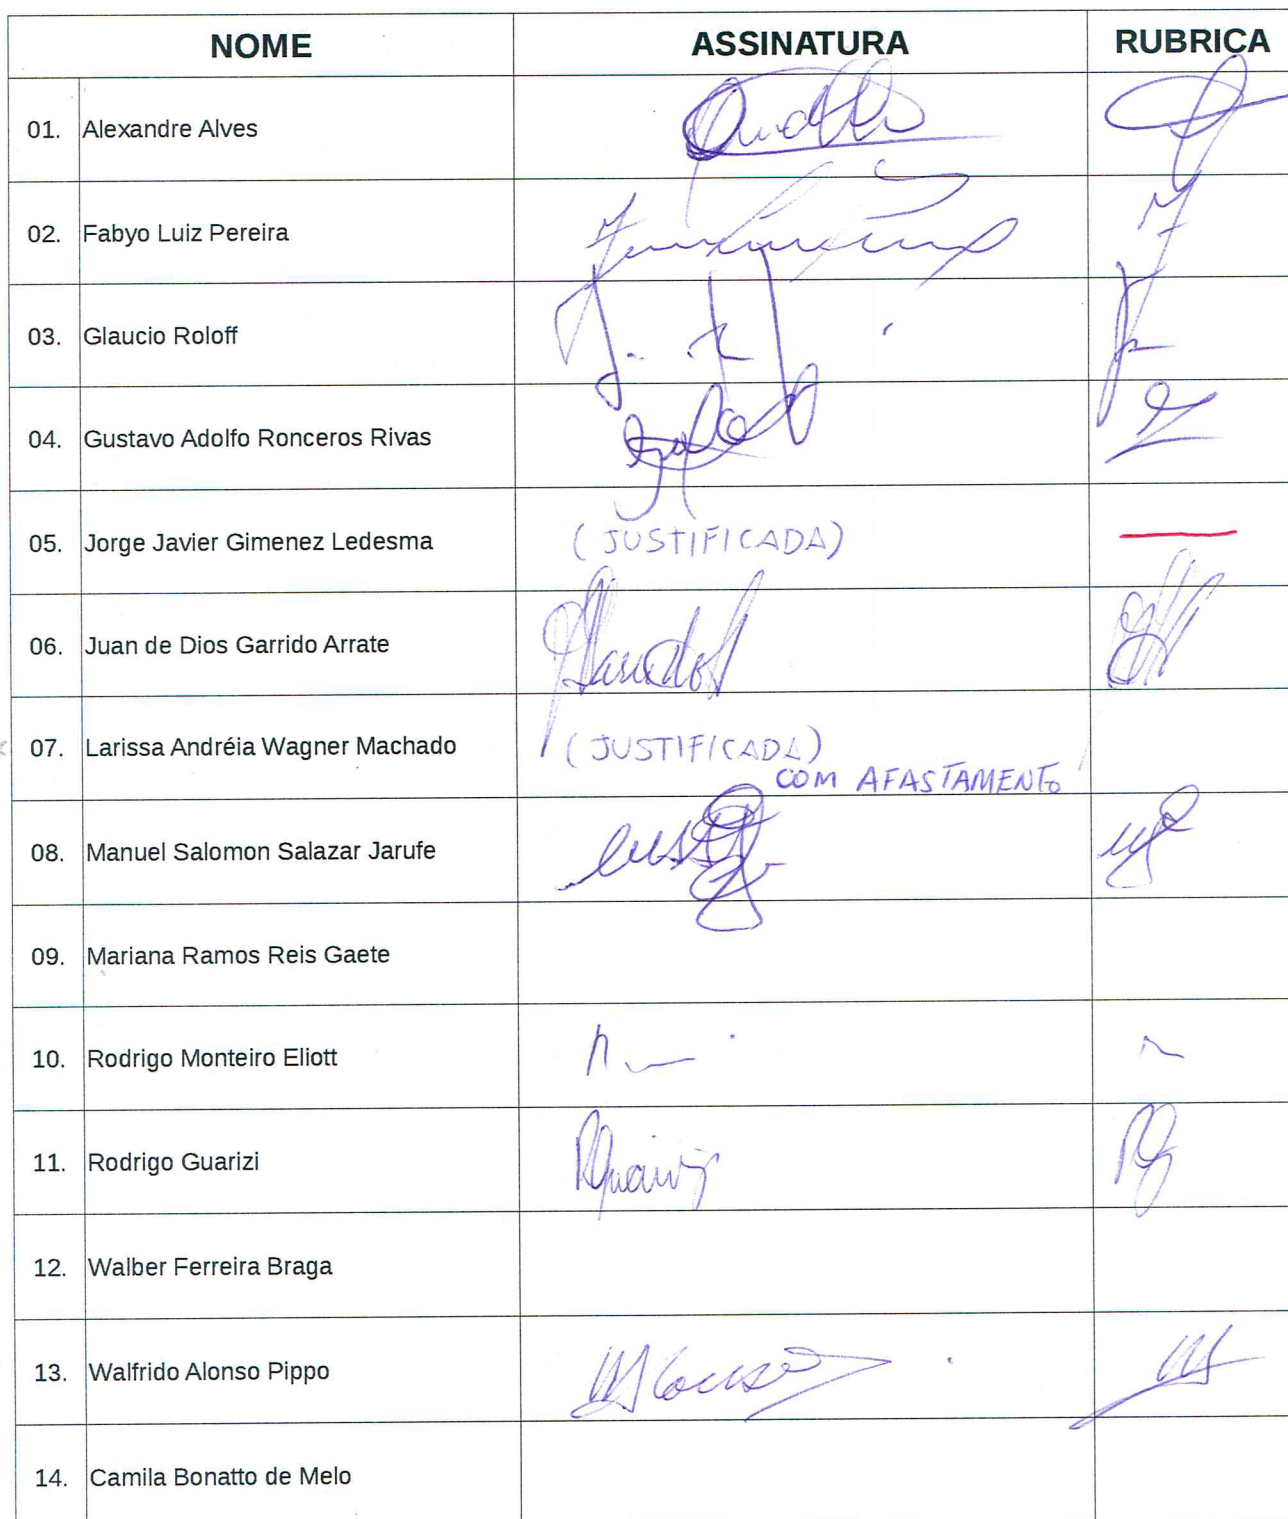 NOME ASSINATURA RUBRICA
01. Alexandre Alves
02. Fabyo Luiz Pereira
03. Glaucio Roloff
04. Gustavo Adolfo Ronceros Rivas
05. Jorge Javier Gimenez Ledesma (JUSTIFICADA)
06. Juan de Dios Garrido Arrate
07. Larissa Andréia Wagner Machado (JUSTIFICADA)
COM AFASTAMENTO
08. Manuel Salomon Salazar Jarufe
09. Mariana Ramos Reis Gaete
10. Rodrigo Monteiro Eliott
11. Rodrigo Guarizi
12. Walber Ferreira Braga
13. Walfrido Alonso Pippo
14. Camila Bonatto de Melo